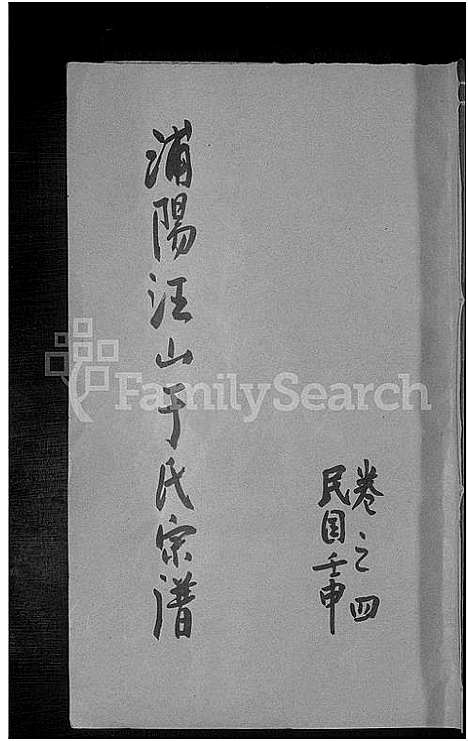 卷之四
民国壬申
浦陽汪山于氏宗譜
FamilySearch